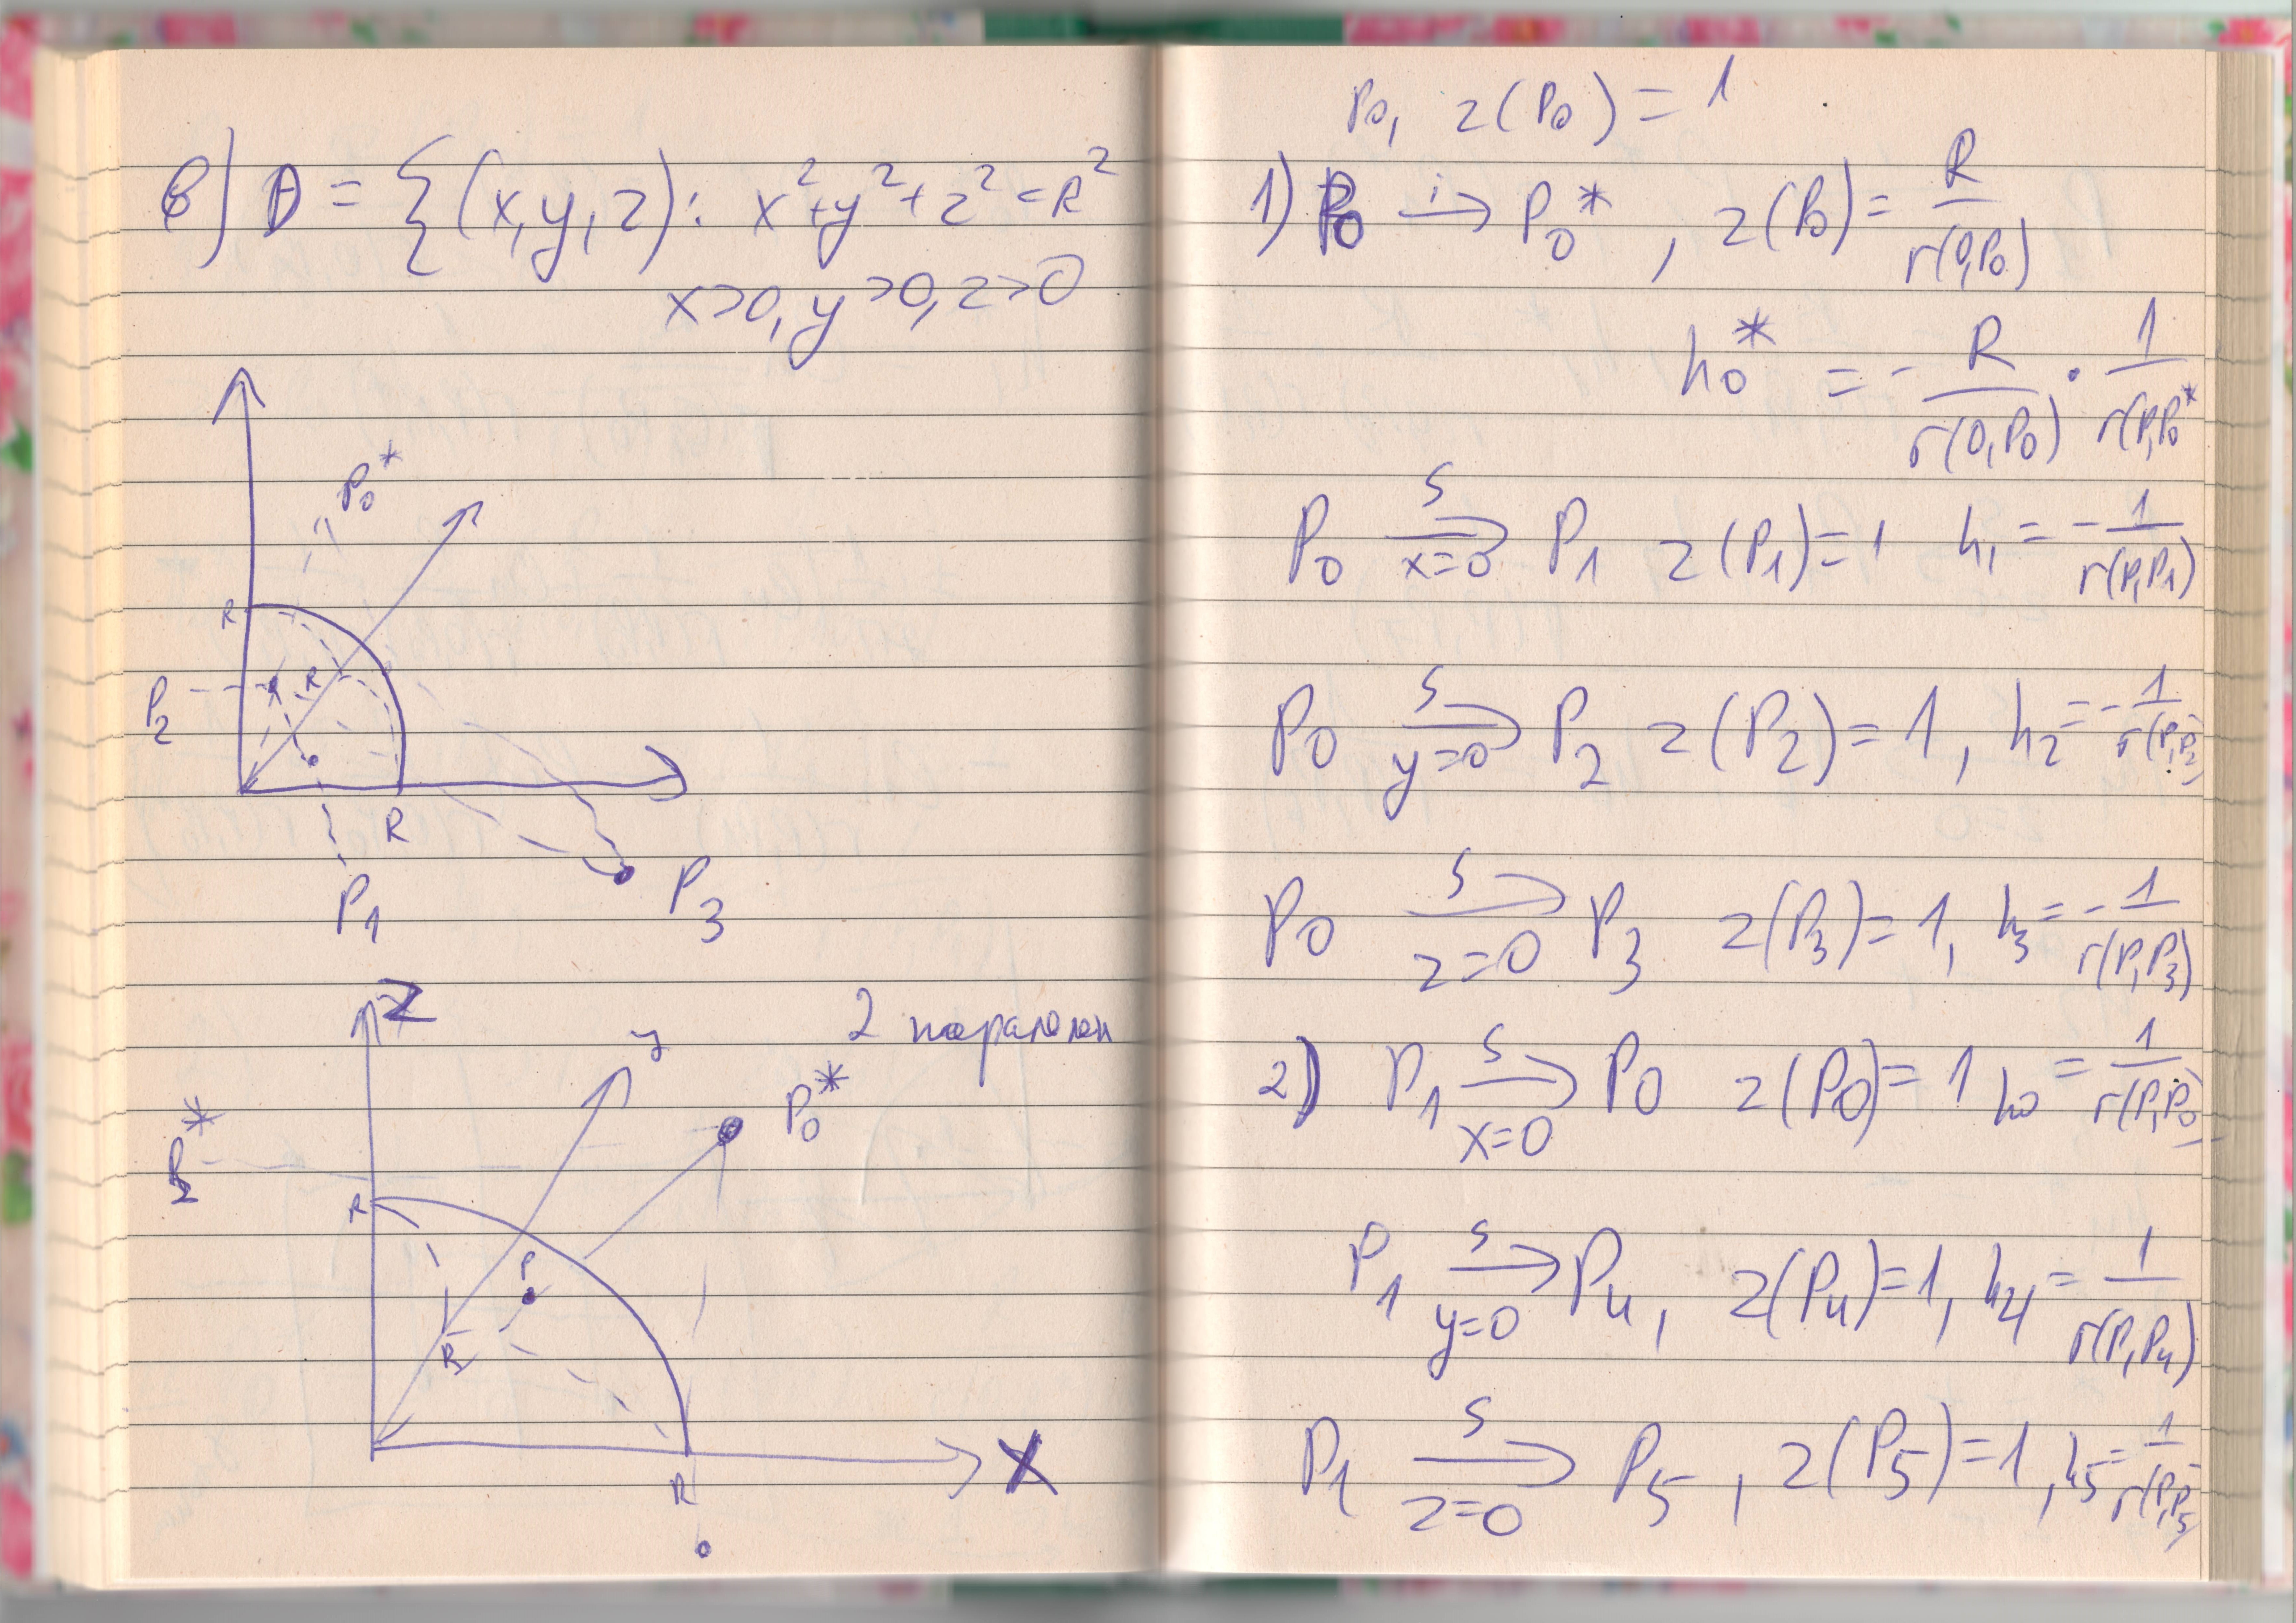 в) D = {(x,y,z): x²+y²+z²=R²
x>0, y>0, z>0
P₀*
R
P₂
R
R
P₁
P₃
z
y
P₀*
P₂*
R
P
R
X
R
P₀, z(P₀) = 1
1) P₀ →ⁱ P₀*, z(P₀) = R/r(0,P₀)
h₀* = - R/r(0,P₀) · 1/r(P,P₀*
P₀ –S→ x=0 P₁ z(P₁)=1 h₁ = - 1/r(P,P₁)
P₀ –S→ y=0 P₂ z(P₂)=1, h₂ = - 1/r(P,P₂)
P₀ –S→ z=0 P₃ z(P₃)=1, h₃ = - 1/r(P,P₃)
2) P₁ –S→ x=0 P₀ z(P₀)=1 h₀ = 1/r(P,P₀)
P₁ –S→ y=0 P₄, z(P₄)=1, h₄ = 1/r(P,P₄)
P₁ –S→ z=0 P₅, z(P₅)=1, h₅ = 1/r(P,P₅)